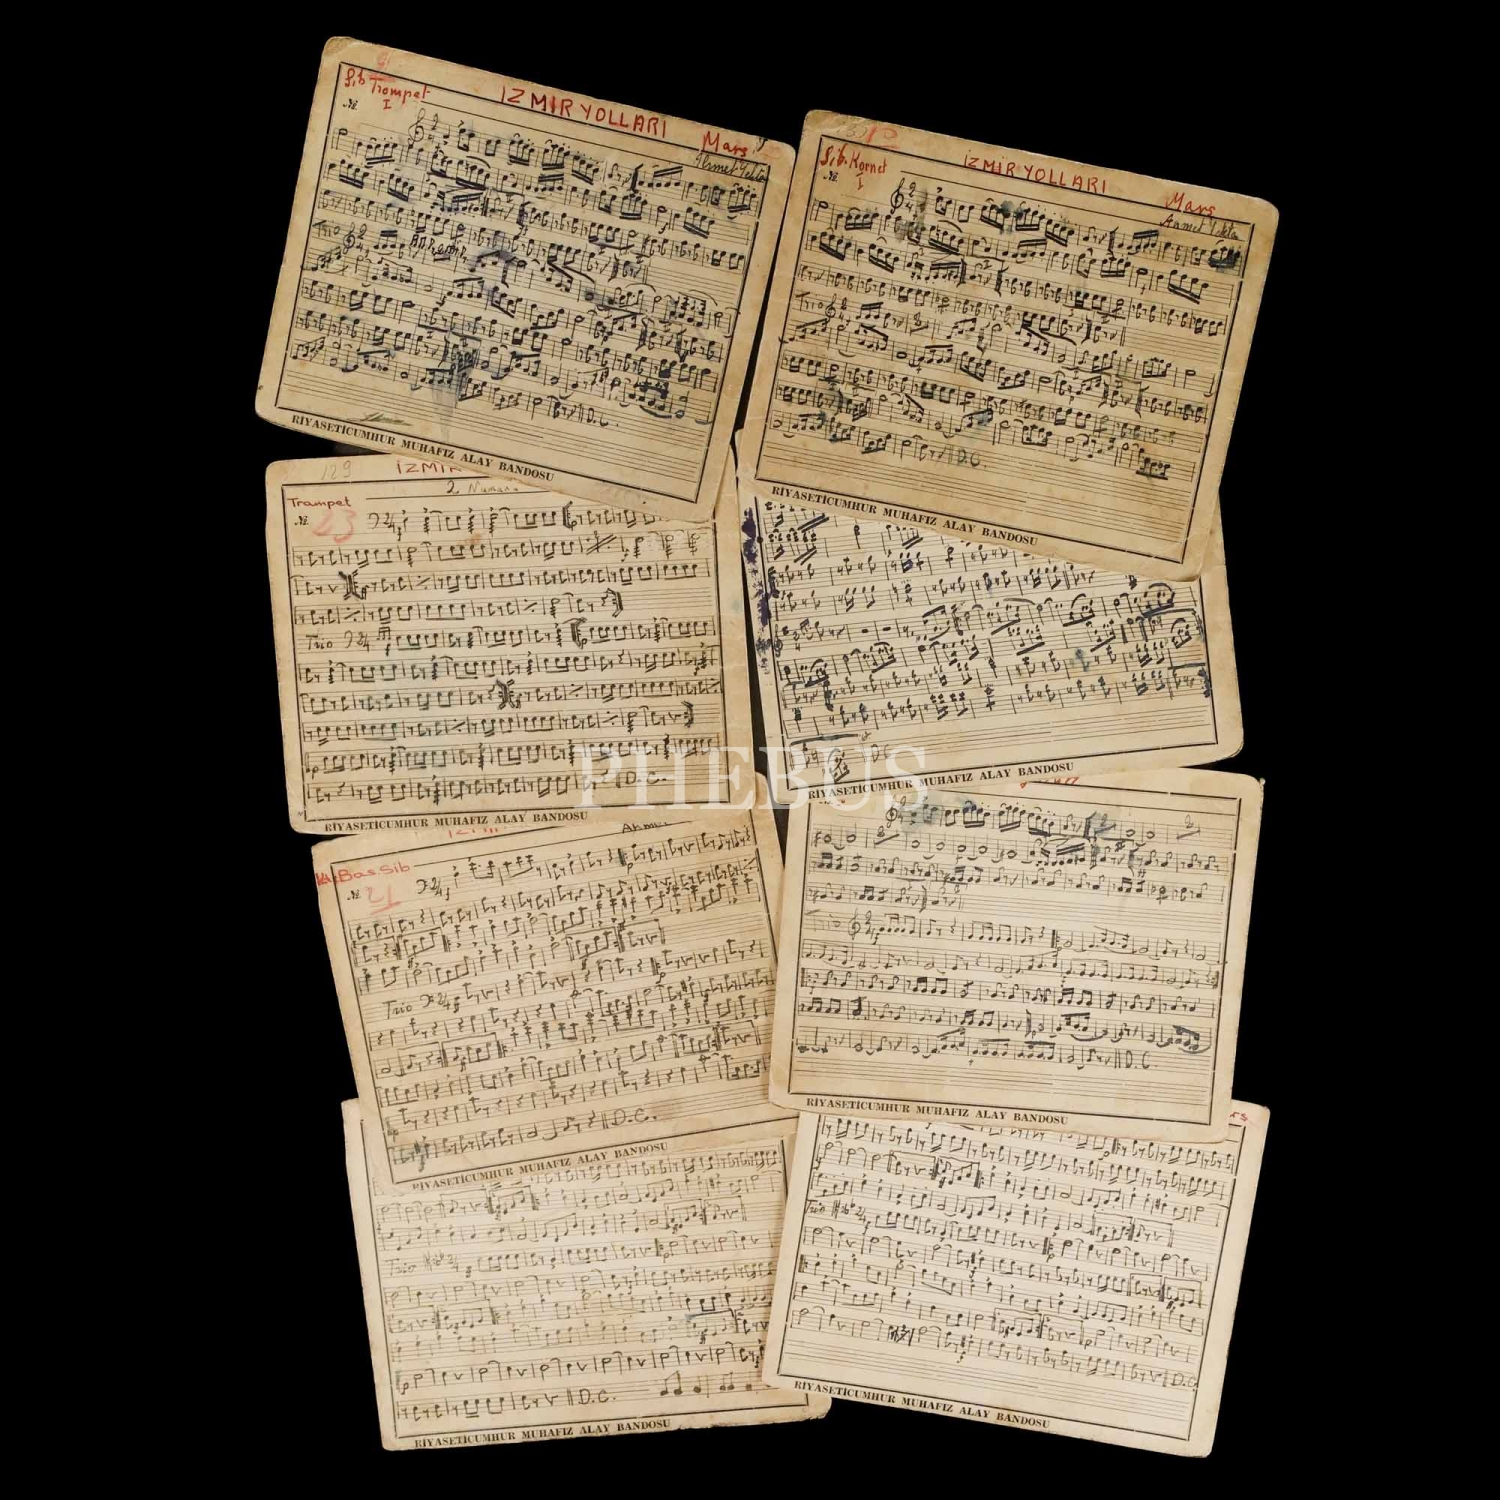 Sib Trompet
I
İZMİR YOLLARI
Marş
№.
Trio
D.C.
RİYASETİCUMHUR MUHAFIZ ALAY BANDOSU
Sib. Kornet
I
İZMİR YOLLARI
Marş
Ahmet Yekta
№.
Trio
D.C.
RİYASETİCUMHUR MUHAFIZ ALAY BANDOSU
129
İZMİR
Trampet
№.
23
Trio
D.C.
RİYASETİCUMHUR MUHAFIZ ALAY BANDOSU
D.
RİYASETİCUMHUR MUHAFIZ ALAY BANDOSU
PHEBUS
Bas Sib
№.
21
Trio
D.C.
RİYASETİCUMHUR MUHAFIZ ALAY BANDOSU
Trio
D.C.
RİYASETİCUMHUR MUHAFIZ ALAY BANDOSU
Trio
D.C.
RİYASETİCUMHUR MUHAFIZ ALAY BANDOSU
Trio
D.C.
RİYASETİCUMHUR MUHAFIZ ALAY BANDOSU